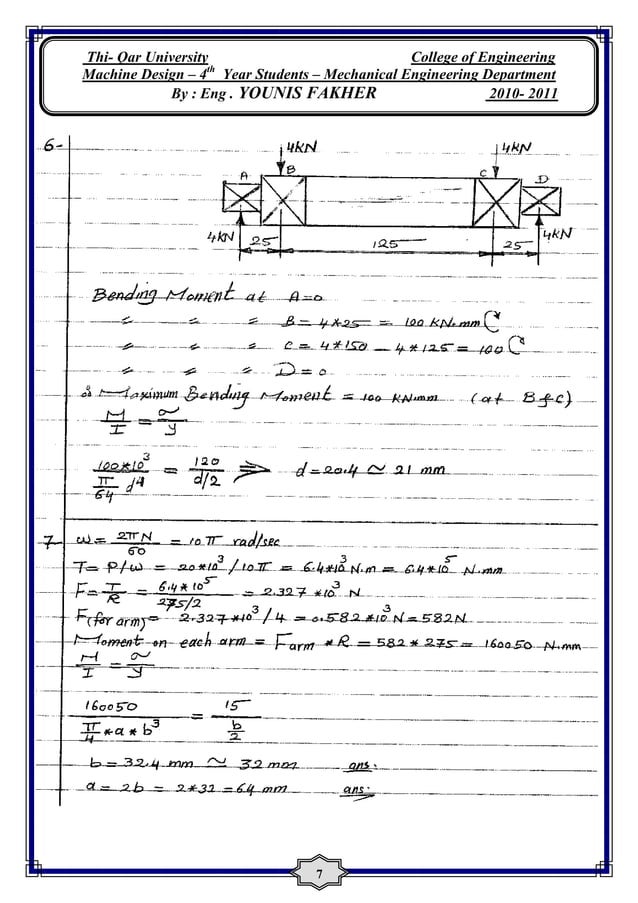 Thi- Qar University College of Engineering
Machine Design – 4th Year Students – Mechanical Engineering Department
By : Eng . YOUNIS FAKHER 2010- 2011
6-
4KN 4KN
A B C D
4KN 25 125 25 4KN
Bending Moment at A=0
〃 〃 〃 B = 4*25 = 100 KN.mm
〃 〃 〃 C = 4*150 - 4*125 = 100
〃 〃 〃 D = 0
∴ Maximum Bending Moment = 100 KN.mm (at B & C)
M/I = σ/y
100*10³ / (π/64 d⁴) = 120 / (d/2) ⇒ d = 20.4 ≃ 21 mm
7- ω = 2πN/60 = 10π rad/sec
T = P/ω = 20*10³/10π = 6.4*10³ N.m = 6.4*10⁵ N.mm
F = T/R = 6.4*10⁵ / 275/2 = 2.327*10³ N
F(for arm) = 2.327*10³/4 = 0.582*10³ N = 582N
Moment on each arm = Farm * R = 582 * 275 = 160050 N.mm
M/I = σ/y
160050 / (π/4 * a * b³) = 15 / (b/2)
b = 32.4 mm ≃ 32 mm ans.
a = 2b = 2*32 = 64 mm ans.
7